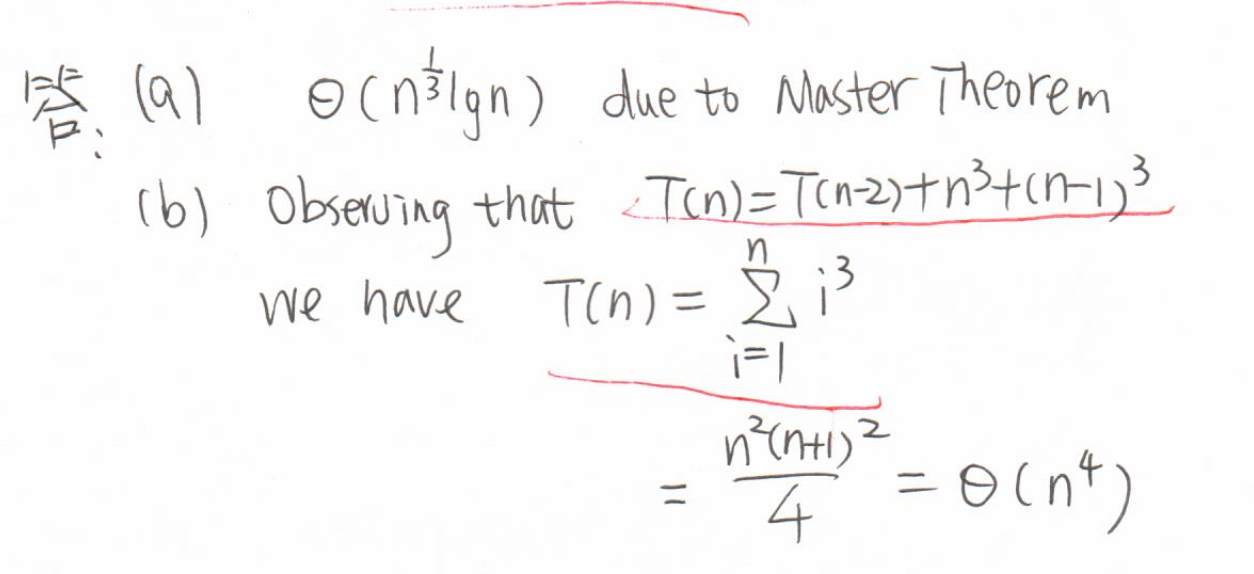 答: (a) Θ(n^{1/3} lg n) due to Master Theorem
(b) Observing that T(n)=T(n-2)+n³+(n-1)³
we have T(n) = \sum_{i=1}^{n} i³
= \frac{n²(n+1)²}{4} = Θ(n⁴)